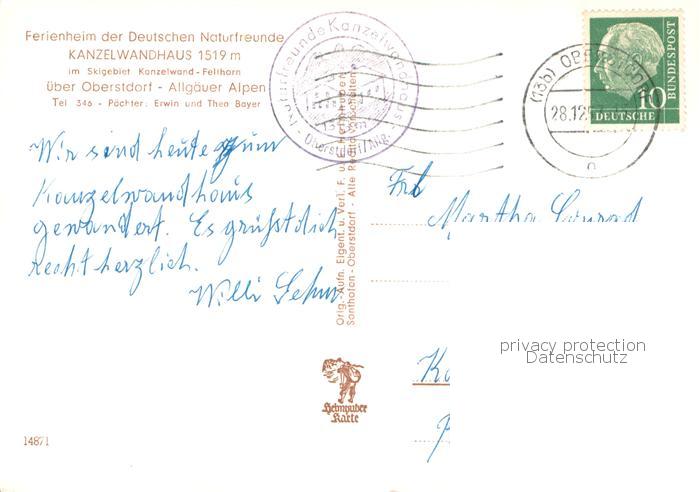 Ferienheim der Deutschen Naturfreunde
KANZELWANDHAUS 1519 m
im Skigebiet Kanzelwand-Fellhorn
über Oberstdorf - Allgäuer Alpen
Tel 346 - Pächter: Erwin und Thea Bayer
Naturfreunde Kanzelwandhaus
Oberstdorf/Allg.
(13b) OBERSTDORF
28.12.
a
10
DEUTSCHE
BUNDESPOST
Wir sind heute zum
Kanzelwandhaus
gewandert. Es grüßt dich
recht herzlich.
Willi
Orig.-Aufn. Eigent. u. Verl. F. u.
Sonthofen-Oberstdorf - Alle Rechte vorbehalten
Martha Conrad
privacy protection
Datenschutz
Heimhuber
Karte
14871